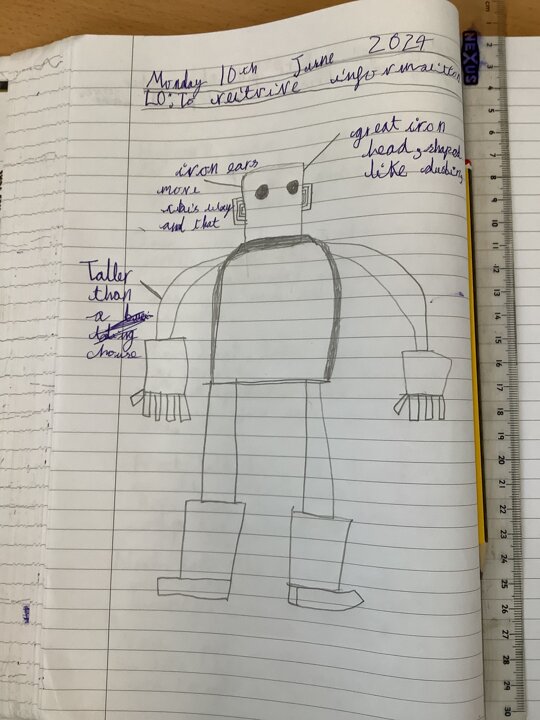 Monday 10th June 2024
LO: To reitrive informaition
great iron
head, shaped
like dusbin
iron ears
move
this way
and that
Taller
than
a
house
NEXUS
cm 1
2
3
4
5
6
7
8
9
10
11
12
13
14
15
16
17
18
19
20
21
22
23
24
25
26
27
28
29
30